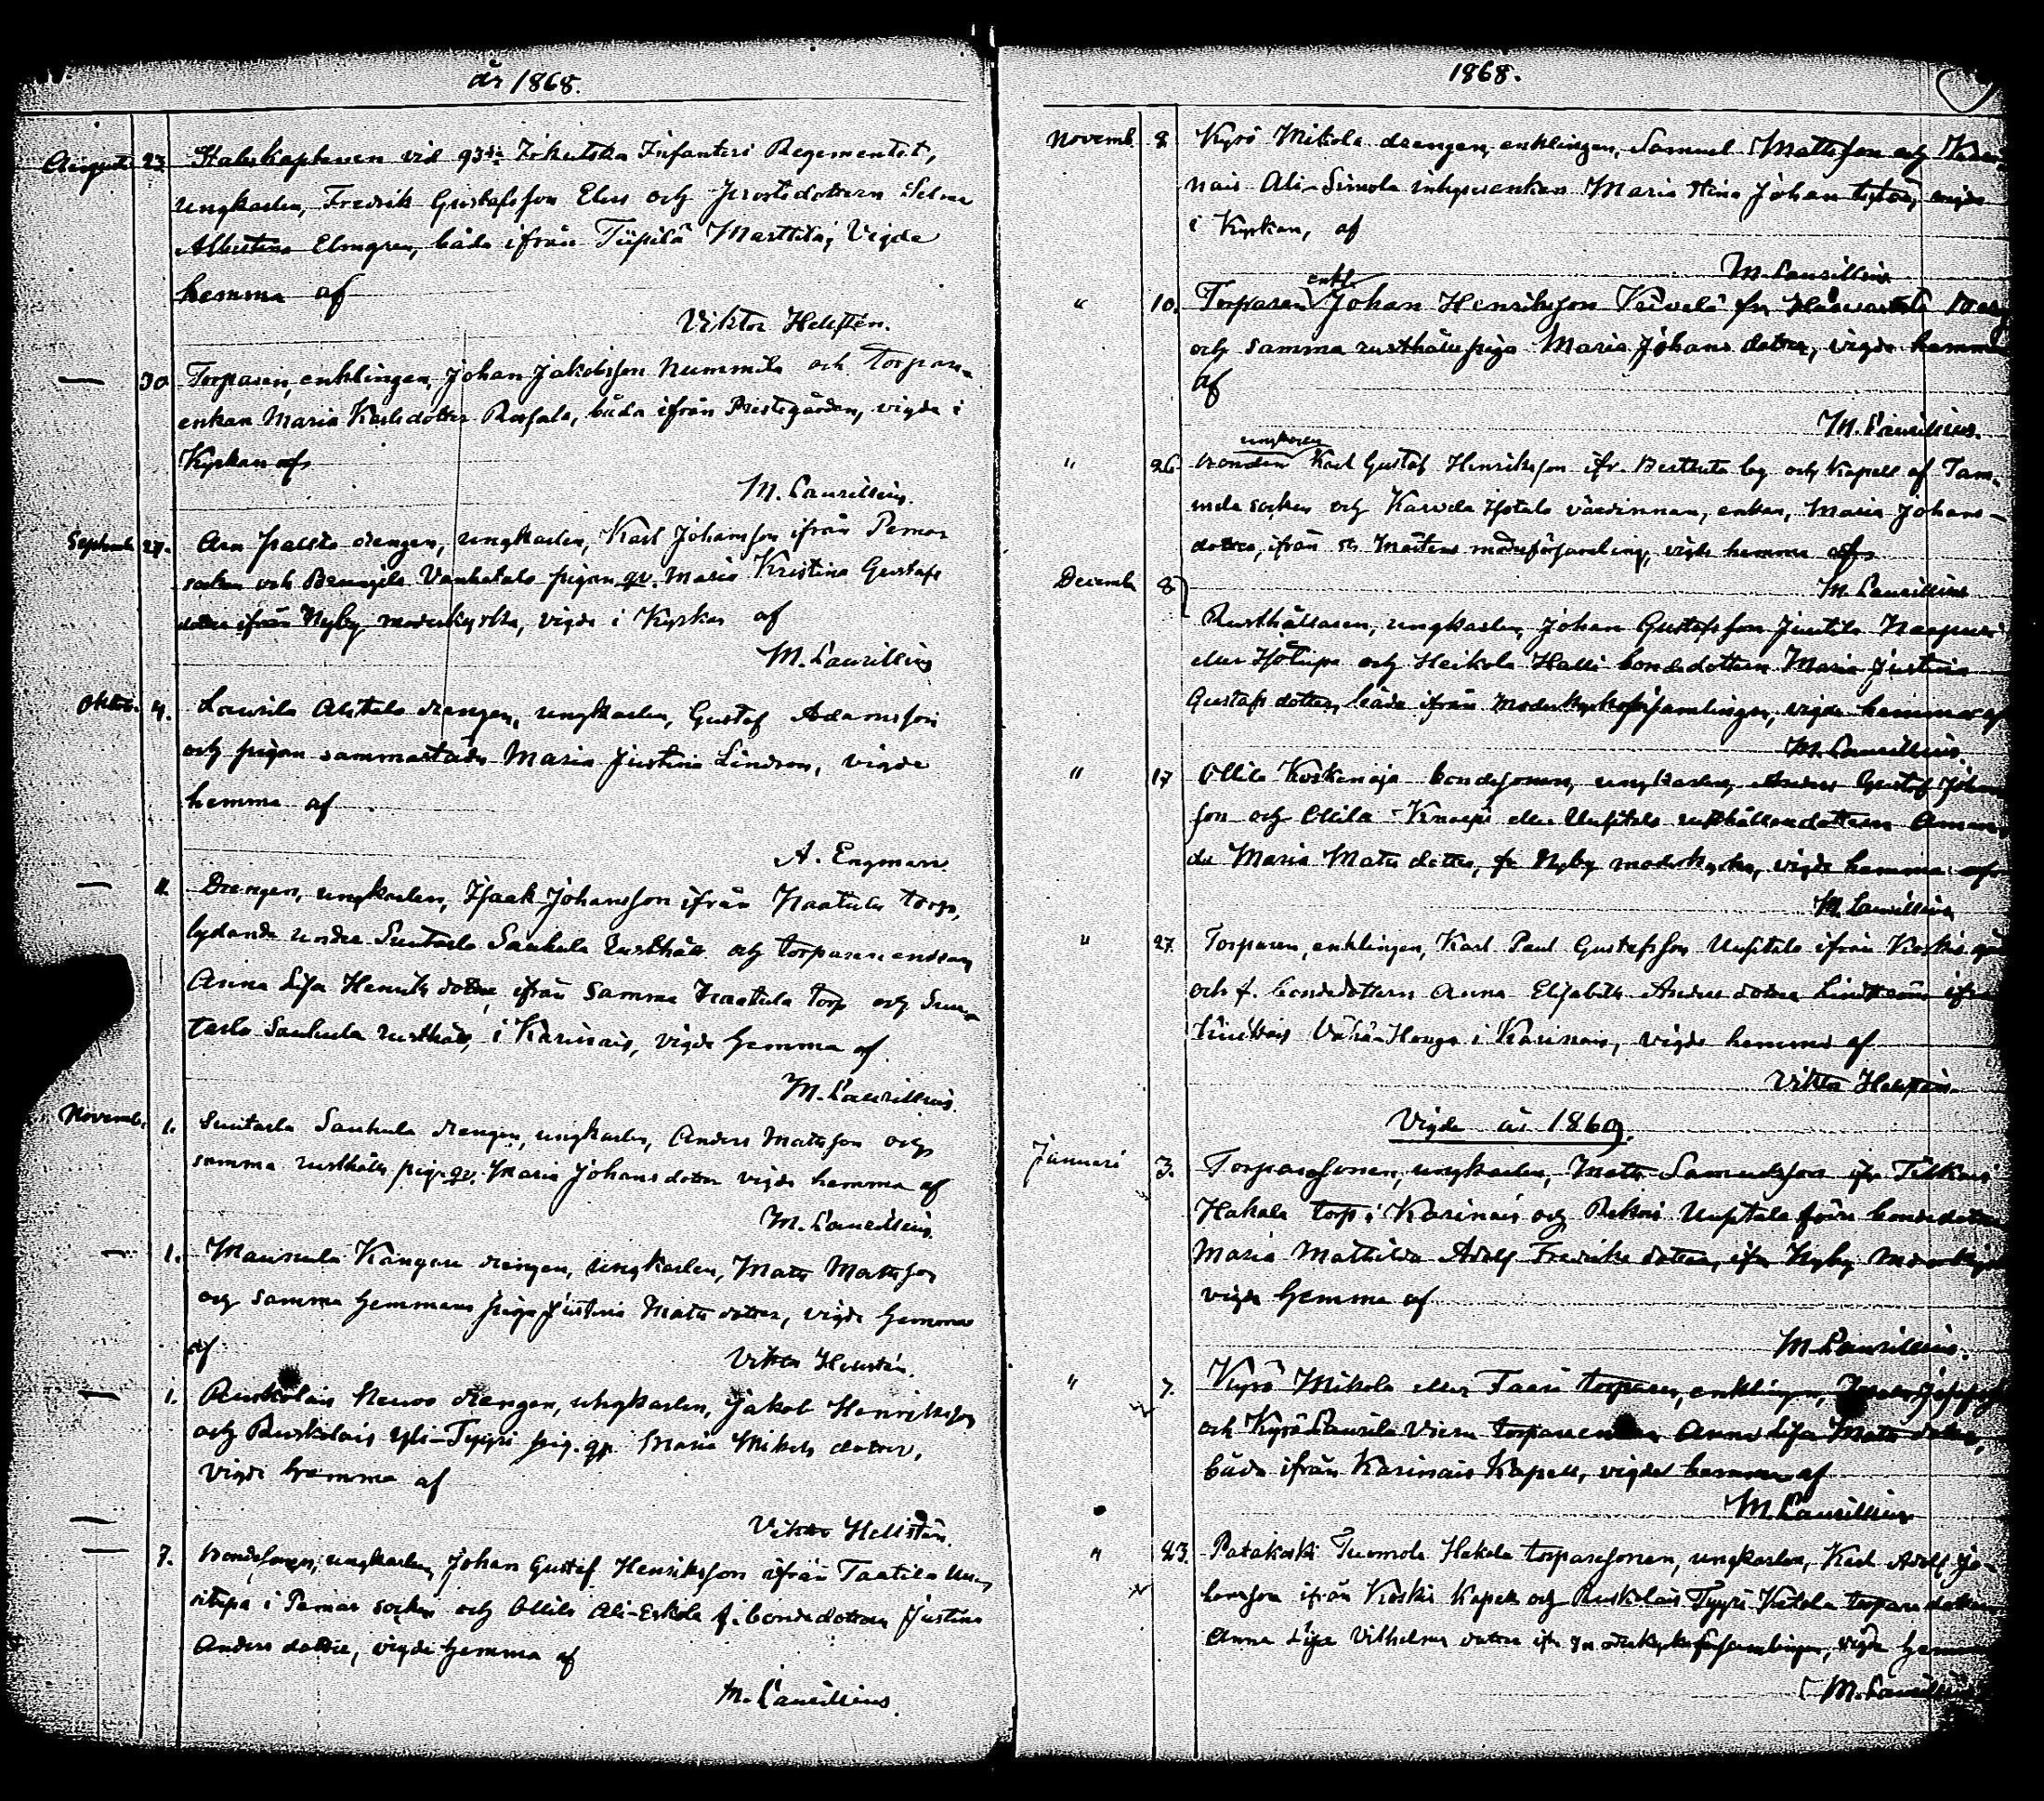 år 1868.
Augusti 23. Stabskaptenen vid 93die Irkutska Infanteri Regementet,
ungkarlen, Fredrik Gustafsson Elers och Prostdottern Selma
Albertina Elmgren, båda ifrån Tiipilä Marttila; Vigde
hemma af
Viktor Hellstén.
— 30 Torparen, enklingen, Johan Jakobsson Nummila och torpare
enkan Maria Karlsdotter Rasfala, båda ifrån Prestegården, vigde i
Kyrkan af
M. Laurillius.
Septemb 27. drengen, ungkarlen, Karl Johansson ifrån Pemar
socken och Vanhatalo pigan qv. Maria Kristina Gustafs
dotter ifrån Nyby moderkyrka, vigde i Kyrkan af
M. Laurillius
Oktob. 4. Laurila Alitalo drengen, ungkarlen, Gustaf Adamsson
och pigan sammastädes Maria Justina Lindroos, vigde
hemma af
A. Engman.
— 11. Drengen, ungkarlen, Isaak Johansson ifrån Haatula torp,
lydande under Suutarla Saukula Rusthåll och torpare enkan
Anna Lisa Henriksdotter, ifrån samma Haatula torp och Suu-
tarla Saukula rusthåll, i Karinais, vigde hemma af
M. Laurillius.
Novemb. 1. Suutarla Saukula drengen, ungkarlen, Anders Matsson och
samma rusthålls pig. qv. Maria Johansdotter vigde hemma af
M. Laurillius
— 1. Maunula Kangare drengen, ungkarlen, Mats Matsson
och samma hemmans piga Justina Matsdotter, vigde hemma
af
Viktor Hellstén.
— 1. Ruskolais Heuvo drengen, ungkarlen, Jakob Henriksson
och Ruskolais Yli-Tyyri pig. qv. Maria Mikelsdotter,
vigde hemma af
—
Viktor Hellstén.
— 7. Bondesonen, ungkarlen, Johan Gustaf Henriksson ifrån Taatila Un-
situpa i Pemar socken och Ollila Ali-Eskola f. bondedottern Justina
Andersdotter, vigde hemma af
M. Laurillius
1868.
Novemb. 8 Kyrö Mikola drengen, enklingen, Samuel Mattsson och Kari-
nais Ali-Simola inhyses enkan Maria Stina Johan dotter, vigde
i Kyrkan, af
M. Laurillius
enkl.
" 10. Torparen Johan Henriksson fr
och samma rusthålls piga Maria Johans dotter, vigde hemma
af
M. Laurillius.
ungkarlen
" 26 Bonden Karl Gustaf Henriksson ifr. by och Kapell af Tam-
mela socken och Karvela Isotalo värdinnan, enkan, Maria Johans-
dotter, ifrån St Mårtens moderförsamling, vigde hemma af
M. Laurillius
Decemb 8 Rusthållaren, ungkarlen, Johan Gustafsson Juutila
eller Isotupa och Heikola Halli bondedottern Maria Justina
Gustafs dotter, båda ifrån Moderkyrkoförsamlingen, vigde hemma af
M. Laurillius.
" 17 Ollila Koskinoja bondesonen, ungkarlen, Anders Gustaf Johan
son och Ollila Knaapi eller Uusitalo rusthållaredottern Aman-
da Maria Mats dotter, fr Nyby moderkyrka, vigde hemma af
M. Laurillius
" 27. Torparen, enklingen, Karl Paul Gustafsson Uusitalo ifrån Koskis
och f. bondedottern Anna Elisabeth Anders dotter ifrån
Vähä-Hauga i Karinais, vigde hemma af
Viktor Hellstén
Vigde år 1869.
Januari 3. Torparesonen, ungkarlen, Mats Samuelsson ifr
Hakala torp i Karinais och Uusitalo förre bondedotter
Maria Mathilda Adolf Fredriks dotter, ifr Nyby Moderkyrka
vigde hemma af
M. Laurillius.
" 7. Kyrö Mikola eller torparen, enklingen,
och Kyrö Laurila torpare enkan Anna Lisa Mats dotter,
båda ifrån Karinais Kapell, vigde hemma af
M. Laurillius
" 23. Patakoski Tuomola Hakala torparesonen, ungkarlen, Karl Adolf Jo-
hansson ifrån Koskis Kapell och Ruskolais Tyyri Ketola torpare dotter
Anna Lisa Vilhelms dotter ifr moderkyrkoförsamlingen, vigde hemma
M. Laurillius